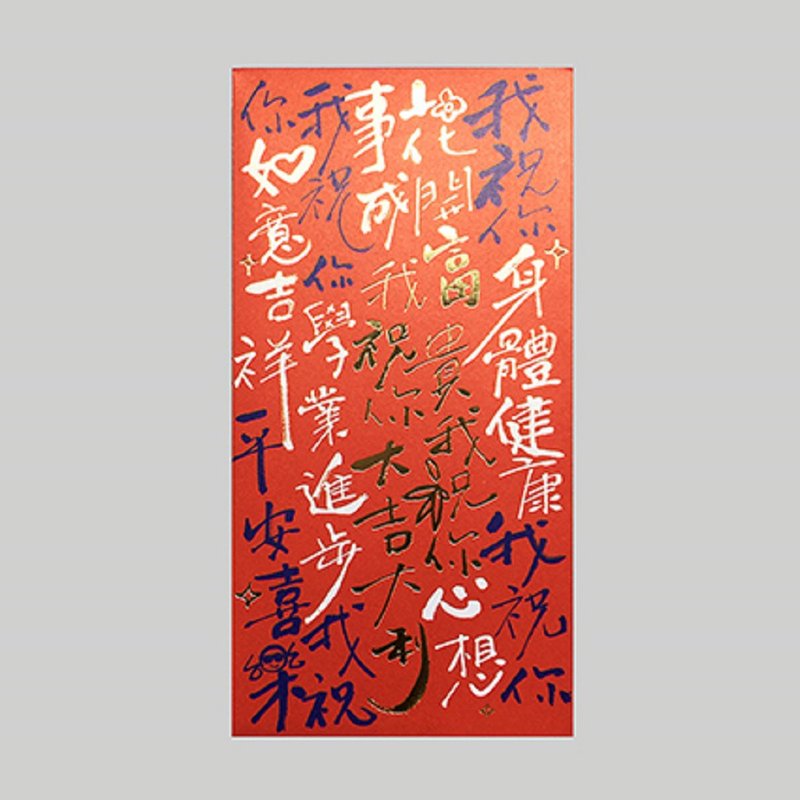 我祝你身體健康我祝你
花開富貴我祝你心想
事成我祝你大吉大利
我祝你學業進步我祝
你如意吉祥平安喜樂